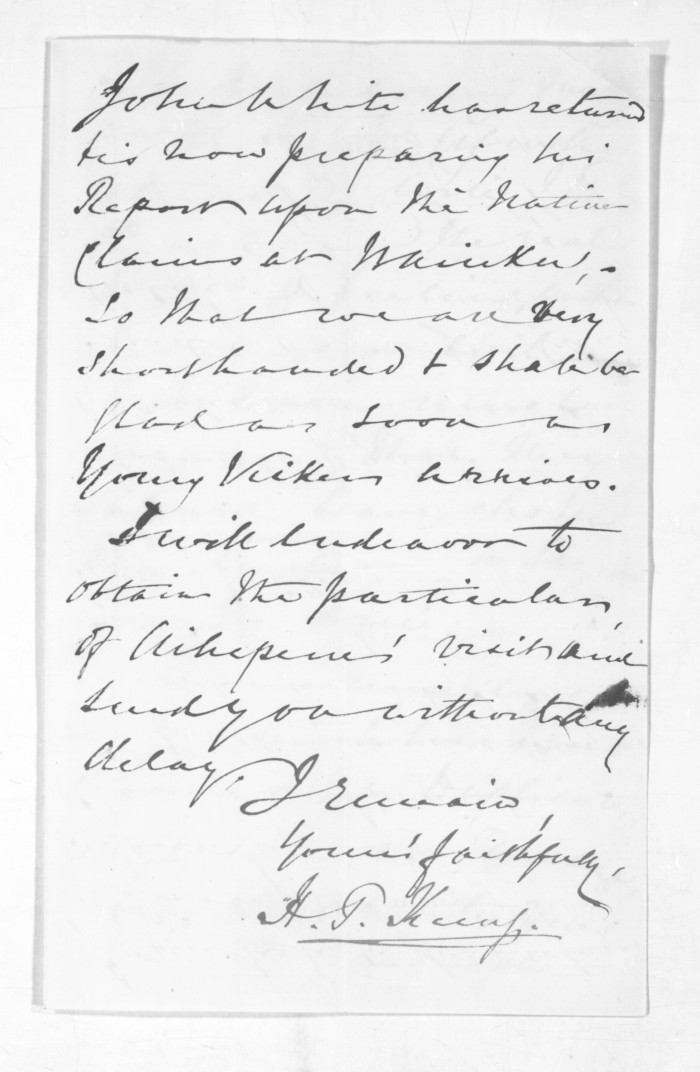 John White has returned
& is now preparing his
Report upon the Native
Claims at Waiuku,.
So that we are very
shorthanded & shall be
glad as soon as
Young Vickers arrives.
I will endeavor to
obtain the particulars,
of Aihepene's visit and
send you without any
delay,
I remain,
Yours faithfully,
H. T. Kemp.